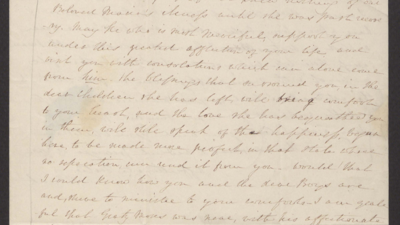 beloved Maria's illness until she was just
May he who is most Merciful, support you
under this greatest affliction of your life, and
visit you with consolations which can alone come
from him. The blessings that surround you, in the
dear children she has left, will bring comfort
to your heart, and the love she has
in them, will still speak of the happiness, begun
here, to be made more perfect, in that state where
no separation can rend it from you. would that
I could know how you and the dear boys are
and, to minister to your comfort
ful that Mrs was near, with her affectionate